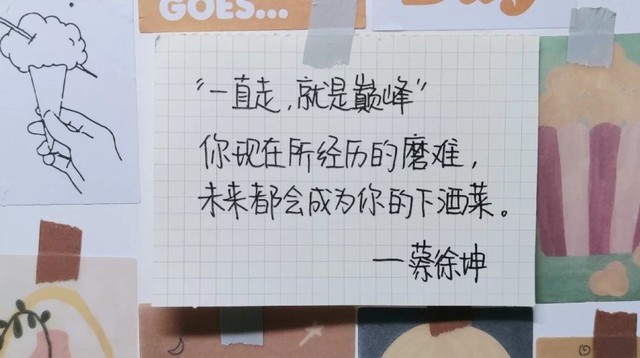 GOES...
“一直走，就是巅峰”
你现在所经历的磨难，
未来都会成为你的下酒菜。
—蔡徐坤